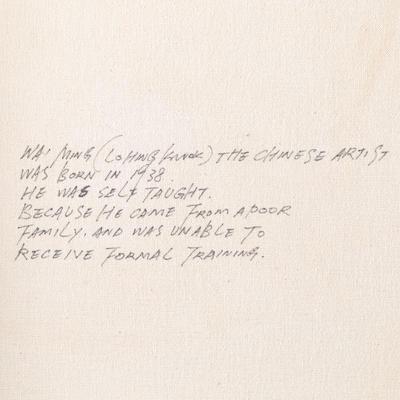 WAI MING (LO HING KWOK) THE CHINESE ARTIST
WAS BORN IN 1938.
HE WAS SELF TAUGHT.
BECAUSE HE CAME FROM A POOR
FAMILY. AND WAS UNABLE TO
RECEIVE FORMAL TRAINING.